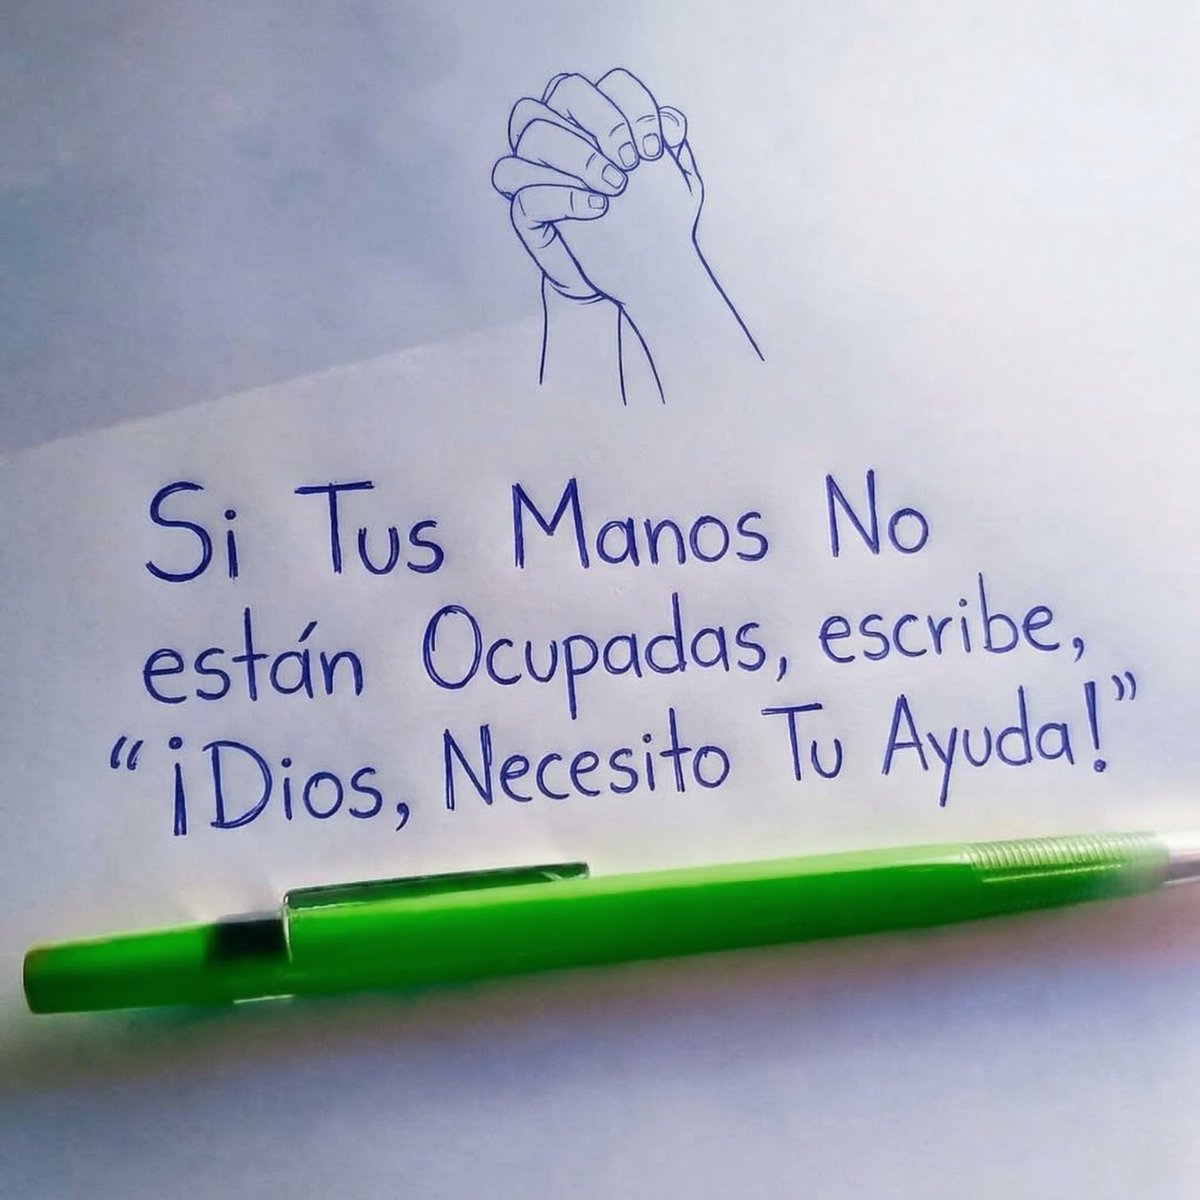 Si Tus Manos No
están Ocupadas, escribe,
“¡Dios, Necesito Tu Ayuda!”